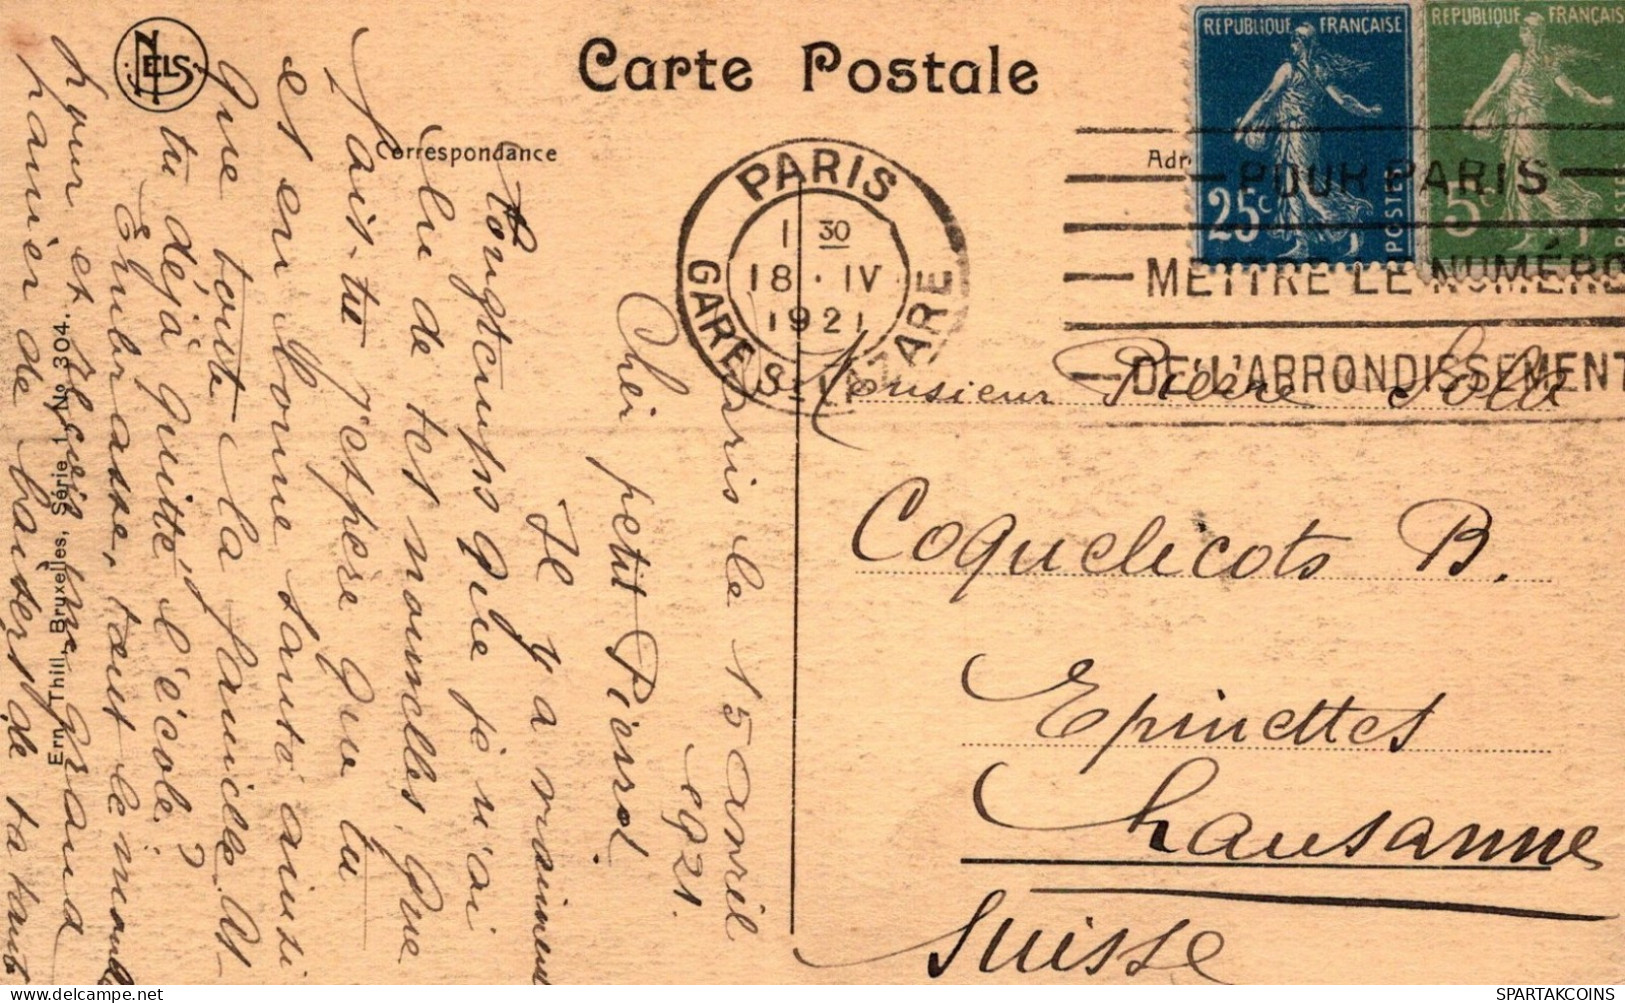 Carte Postale
Correspondance
Adr
NELS
Ern. Thill, Bruxelles, Série 1 No 304.
REPUBLIQUE FRANÇAISE
25c
POSTES
REPUBLIQUE FRANÇAIS
5c
PARIS
1 30
18 · IV
1921
GARE S LAZARE
POUR PARIS
METTRE LE NUMÉRO
DE L'ARRONDISSEMENT
Monsieur Pierre
Coquelicots B.
Epinettes
Lausanne
Suisse
Paris le 15 avril
1921.
Cher petit Pierrot
Il y a vraiment
longtemps que je n'ai
lu de tes nouvelles, que
fais-tu j'espère que tu
es en bonne santé ainsi
que toute la famille. As-
tu déjà quitté l'école?
Embrasse, tout le monde
pour et reçois un grand
panier de baisers de ta tante
SPARTAKCOINS